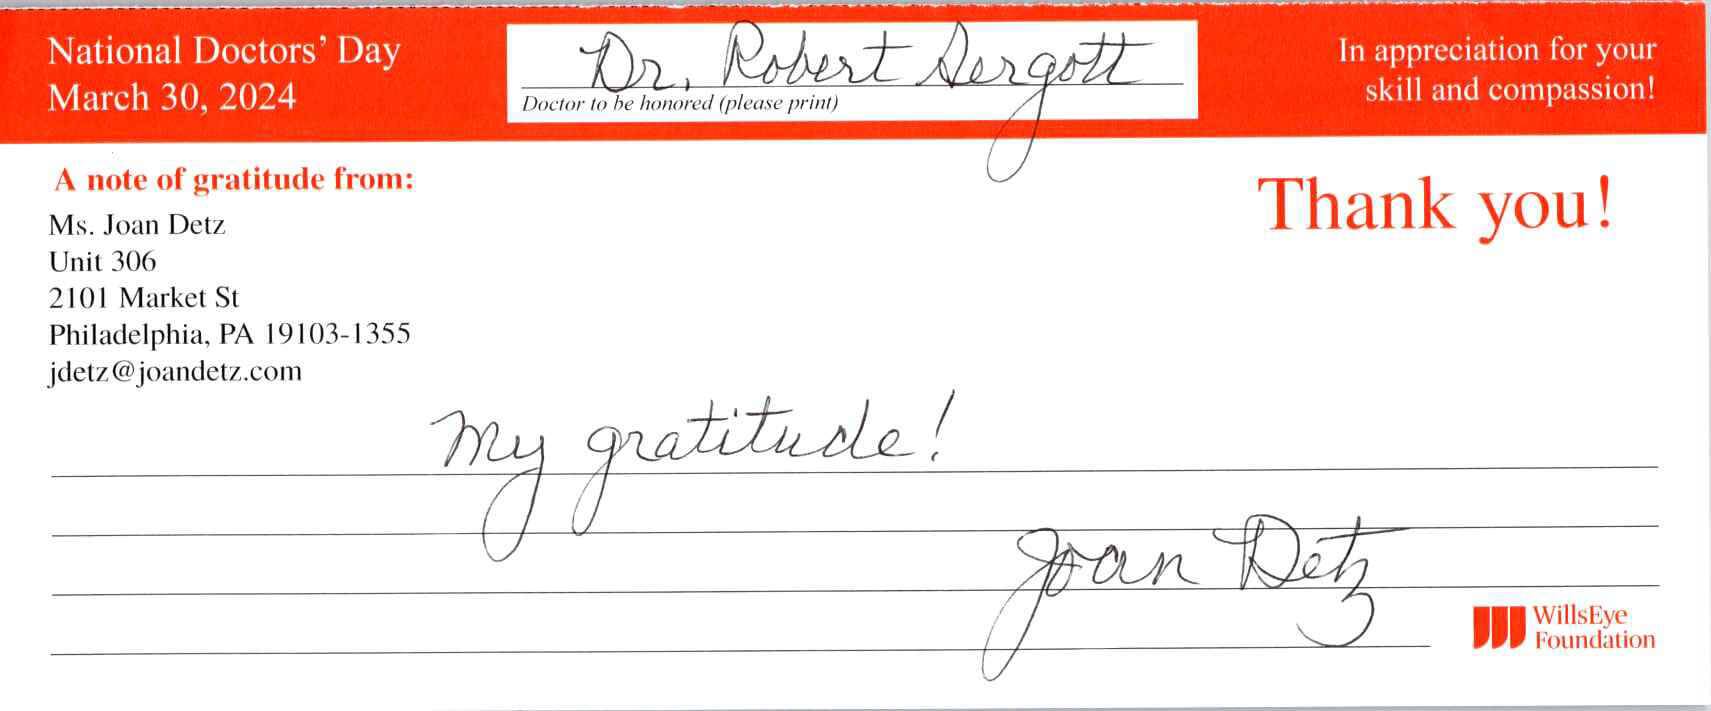 National Doctors' Day
March 30, 2024
Dr. Robert Sergott
Doctor to be honored (please print)
In appreciation for your
skill and compassion!
A note of gratitude from:
Ms. Joan Detz
Unit 306
2101 Market St
Philadelphia, PA 19103-1355
jdetz@joandetz.com
Thank you!
My gratitude!
Joan Detz
WillsEye
Foundation